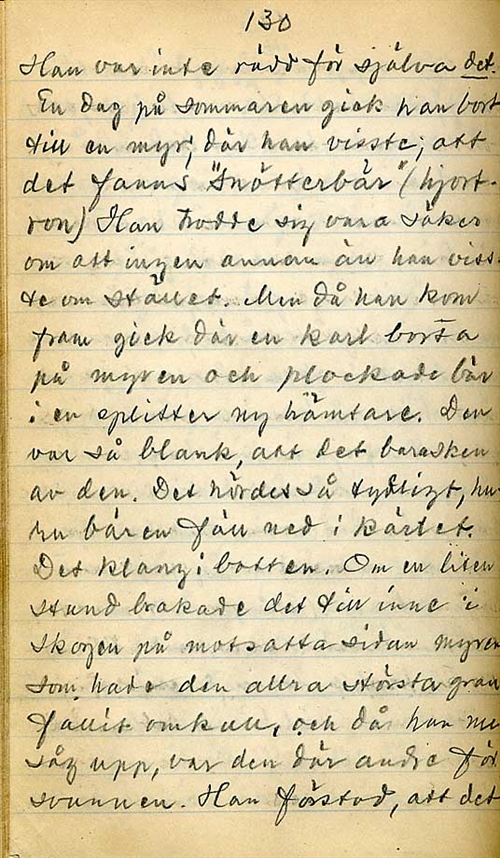 130
Han var inte rädd för själva det.
En dag på sommaren gick han bort
till en myr, där han visste, att
det fanns "Snötterbär" (hjort-
ron) Han trodde sig vara säker
om att ingen annan än han viss-
te om stället. Men då han kom
fram gick där en karl borta
på myren och plockade bär
i en splitter ny hämtare. Den
var så blank, att det bara sken
av den. Det hördes så tydligt, hu-
ru bären föll ned i kärlet.
Det klang i botten. Om en liten
stund brakade det till inne i
skogen på motsatta sidan myren
som hade den allra största gran
fallit omkull, och då han nu
såg upp, var den där andre för
svunnen. Han förstod, att det